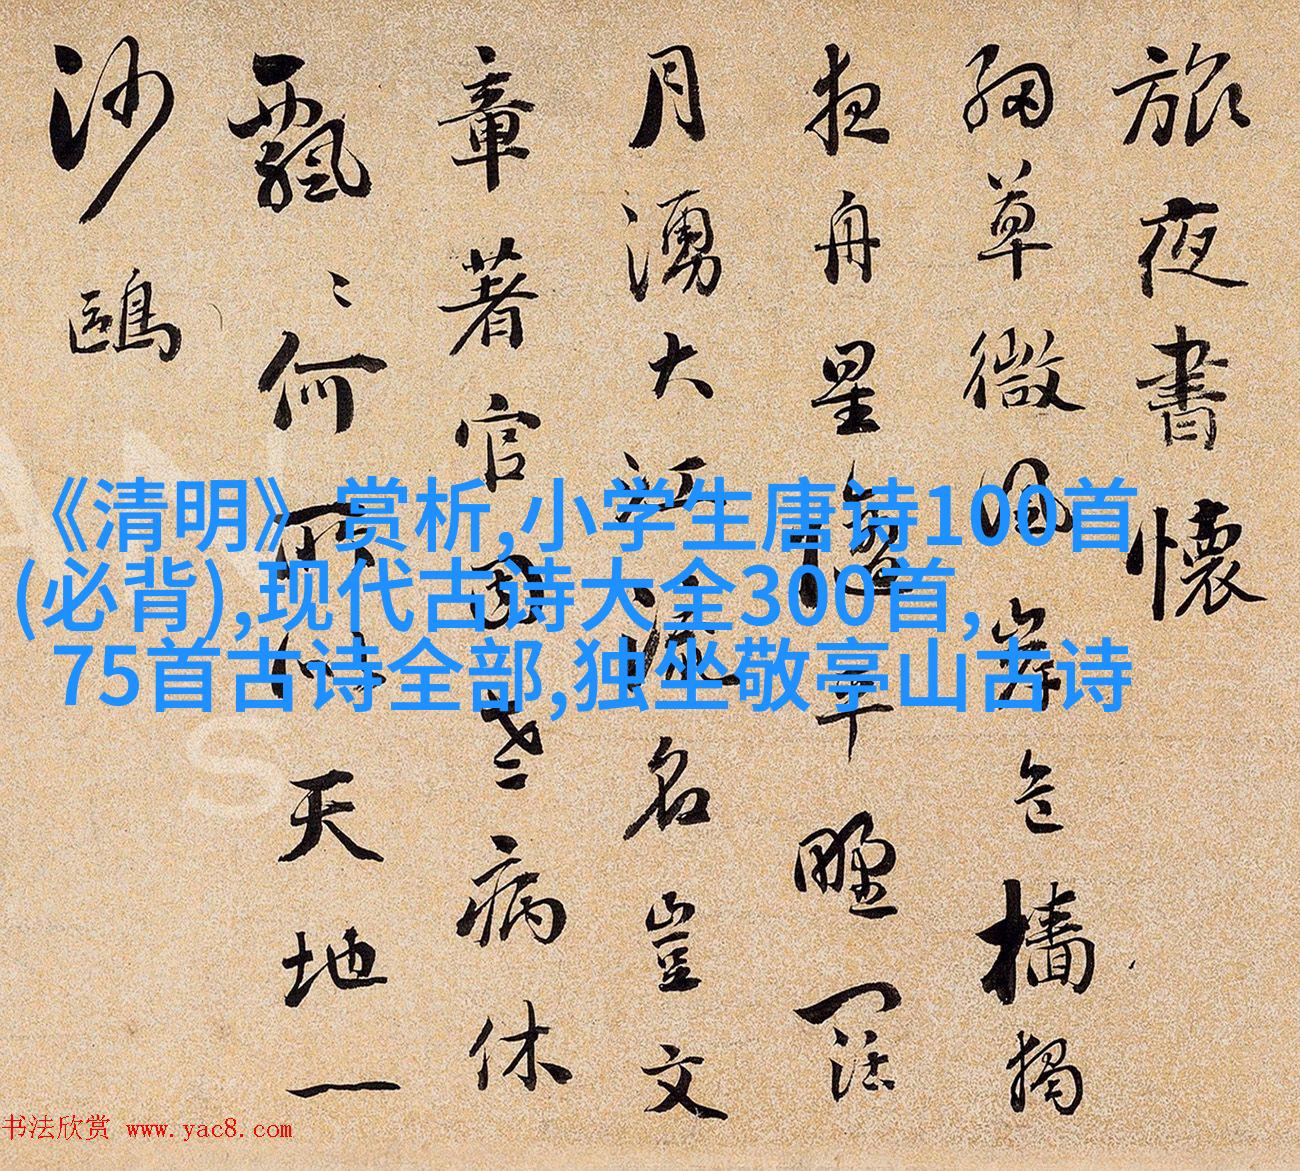 旅夜書懷
細草微風岸危檣獨
夜舟星平野闊
月湧大江流名豈文
章著官因老病休
飄〻何所似天地一
沙鷗
《清明》赏析,小学生唐诗100首
(必背),现代古诗大全300首,
75首古诗全部,独坐敬亭山古诗
书法欣赏 www.yac8.com